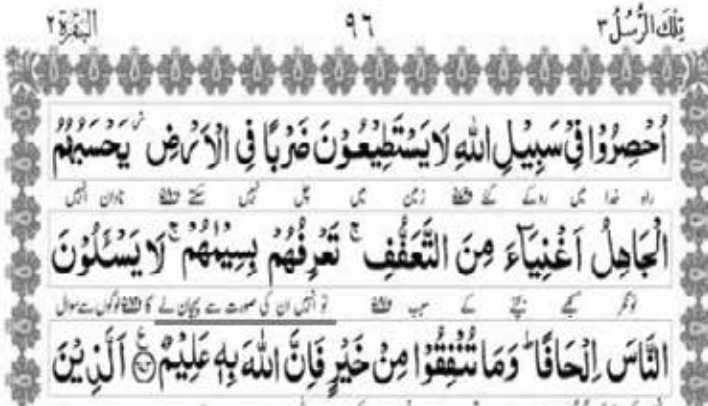 تِلْكَ الرُّسُلُ ٣ ٩٦ البقرة ٢
اُحْصِرُوْا فِيْ سَبِيْلِ اللهِ لَا يَسْتَطِيْعُوْنَ ضَرْبًا فِي الْاَرْضِ يَحْسَبُهُمُ
راہ خدا میں روکے گئے زمین میں چل نہیں سکتے نادان انہیں
الْجَاهِلُ اَغْنِيَآءَ مِنَ التَّعَفُّفِ ۚ تَعْرِفُهُمْ بِسِيْمٰهُمْ ۚ لَا يَسْـَٔلُوْنَ
تونگر سمجھے بچنے کے سبب تو انہیں ان کی صورت سے پہچان لے گا لوگوں سے سوال
النَّاسَ اِلْحَافًا ؕ وَمَا تُنْفِقُوْا مِنْ خَيْرٍ فَاِنَّ اللهَ بِهٖ عَلِيْمٌ اَلَّذِيْنَ